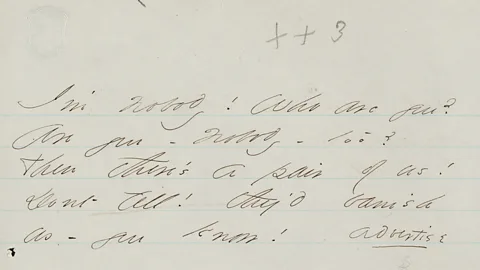 + + 3
I'm Nobody! Who are you?
Are you - Nobody - too?
Then there's a pair of us!
Dont tell! they'd banish
us - you know! advertise